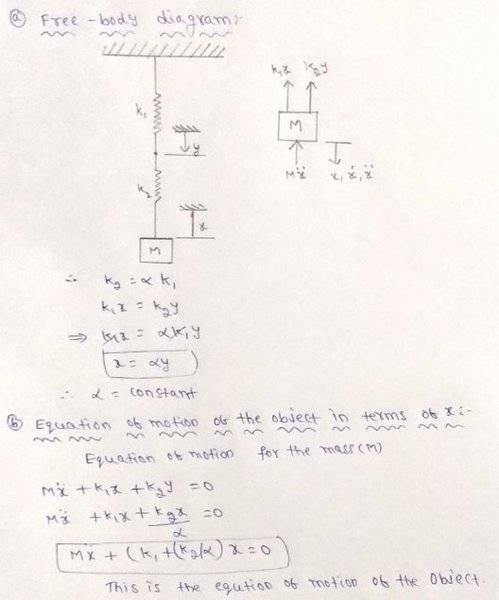 (a) Free-body diagram:-
k₁
y
k₂
x
M
k₁x k₂y
M
Mẍ x, ẋ, ẍ
∴ k₂ = α k₁
k₁x = k₂y
⇒ k₁x = αk₁y
x = αy
∴ α = constant
(b) Equation of motion of the object in terms of x:-
Equation of motion for the mass (M)
Mẍ + k₁x + k₂y = 0
Mẍ + k₁x + k₂x/α = 0
Mẍ + (k₁ + (k₂/α) x = 0
This is the eqution of motion of the Object.